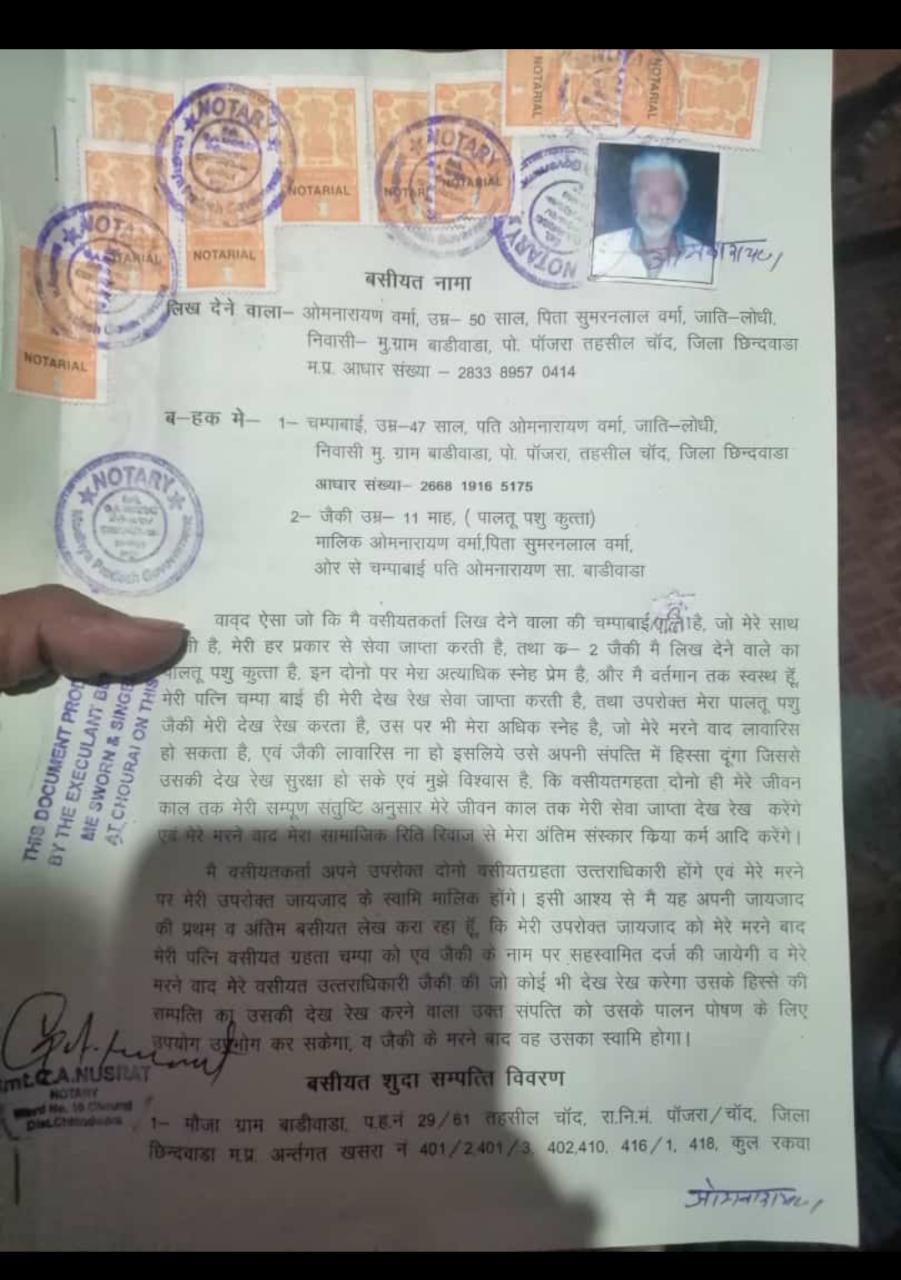 NOTARY
NOTARIAL
NOTARY
NOTARIAL
NOTARIAL
NOTARIAL
NOTARIAL
NOTARY
NOTARY
NOTARIAL
NOTARIAL
NOTARY
NOTARIAL
ओमनारायण
बसीयत नामा
लिख देने वाला– ओमनारायण वर्मा, उम्र– 50 साल, पिता सुमरनलाल वर्मा, जाति–लोधी,
निवासी– मु.ग्राम बाडीवाडा, पो. पॉजरा तहसील चॉद, जिला छिन्दवाडा
म.प्र. आधार संख्या – 2833 8957 0414
ब–हक मे– 1– चम्पाबाई, उम्र–47 साल, पति ओमनारायण वर्मा, जाति–लोधी,
निवासी मु. ग्राम बाडीवाडा, पो. पॉजरा, तहसील चॉद, जिला छिन्दवाडा
आधार संख्या– 2668 1916 5175
2– जैकी उम्र– 11 माह, ( पालतू पशु कुत्ता)
मालिक ओमनारायण वर्मा,पिता सुमरनलाल वर्मा,
ओर से चम्पाबाई पति ओमनारायण सा. बाडीवाडा
NOTARY
Madhya Pradesh Government
वावद ऐसा जो कि मै वसीयतकर्ता लिख देने वाला की चम्पाबाई पत्नि है, जो मेरे साथ
है, मेरी हर प्रकार से सेवा जाप्ता करती है, तथा क्र– 2 जैकी मै लिख देने वाले का
पालतू पशु कुत्ता है, इन दोनो पर मेरा अत्याधिक स्नेह प्रेम है, और मै वर्तमान तक स्वस्थ हूँ,
मेरी पत्नि चम्पा बाई ही मेरी देख रेख सेवा जाप्ता करती है, तथा उपरोक्त मेरा पालतू पशु
जैकी मेरी देख रेख करता है, उस पर भी मेरा अधिक स्नेह है, जो मेरे मरने वाद लावारिस
हो सकता है, एवं जैकी लावारिस ना हो इसलिये उसे अपनी संपत्ति में हिस्सा दूंगा जिससे
उसकी देख रेख सुरक्षा हो सके एवं मुझे विश्वास है, कि वसीयतगहता दोनो ही मेरे जीवन
काल तक मेरी सम्पूण संतुष्टि अनुसार मेरे जीवन काल तक मेरी सेवा जाप्ता देख रेख करेंगे
एवं मेरे मरने वाद मेरा सामाजिक रिति रिवाज से मेरा अंतिम संस्कार किया कर्म आदि करेंगे।
THIS DOCUMENT PROD
BY THE EXECULANT BE
ME SWORN & SINGE
AT CHOURAI ON THIS
मै वसीयतकर्ता अपने उपरोक्त दोनो वसीयतग्रहता उत्तराधिकारी होंगे एवं मेरे मरने
पर मेरी उपरोक्त जायजाद के स्वामि मालिक होंगे। इसी आश्य से मै यह अपनी जायजाद
की प्रथम व अंतिम बसीयत लेख करा रहा हूँ, कि मेरी उपरोक्त जायजाद को मेरे मरने बाद
मेरी पत्नि वसीयत ग्रहता चम्पा को एवं जैकी के नाम पर सहस्वामित दर्ज की जायेगी व मेरे
मरने वाद मेरे वसीयत उत्तराधिकारी जैकी की जो कोई भी देख रेख करेगा उसके हिस्से की
सम्पत्ति का उसकी देख रेख करने वाला उक्त संपत्ति को उसके पालन पोषण के लिए
उपयोग उपभोग कर सकेगा, व जैकी के मरने बाद वह उसका स्वामि होगा।
C.A.NUSRAT
NOTARY
बसीयत शुदा सम्पत्ति विवरण
1– मौजा ग्राम बाडीवाडा, प.ह.नं 29/61 तहसील चॉद, रा.नि.मं. पॉजरा/चॉद, जिला
छिन्दवाडा म.प्र. अर्न्तगत खसरा नं 401/2,401/3, 402,410, 416/1, 418, कुल रकवा
ओमनारायण